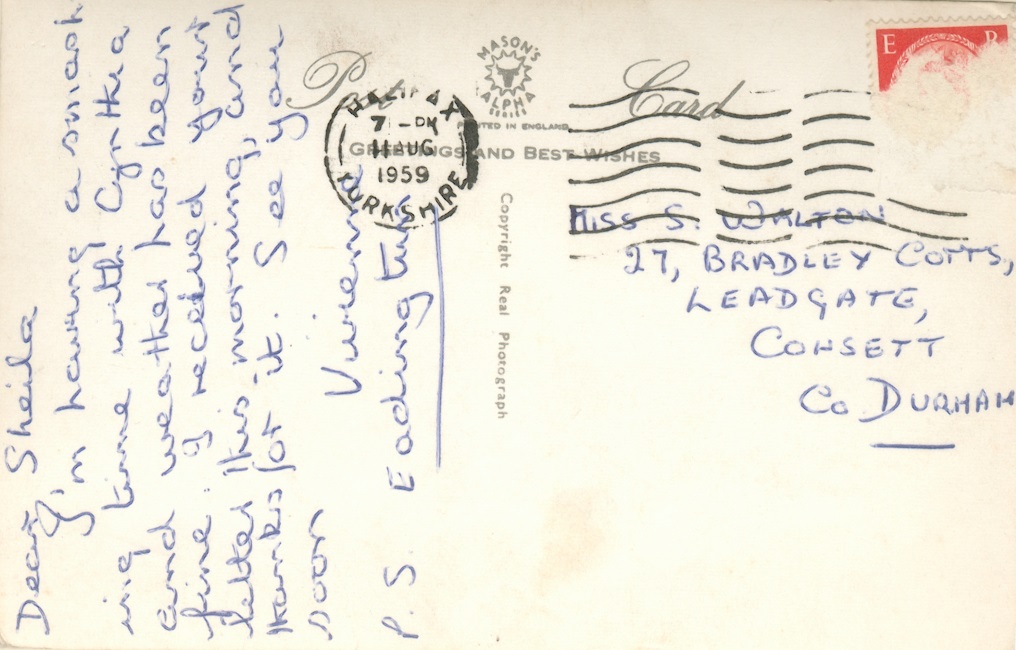 Dear Sheila
I'm having a smash
ing time with Cynthia
and weather has been
fine. I received your
letter this morning, and
thanks for it. See you
soon
Vivienne
P.S. Eadington
Post Card
MASON'S
ALPHA
SERIES
PRINTED IN ENGLAND
GREETINGS AND BEST WISHES
HALIFAX
7 - PM
11 AUG
1959
YORKSHIRE
Copyright Real Photograph
E R
MISS S. WALTON
27, BRADLEY COTTS,
LEADGATE,
CONSETT
CO DURHAM